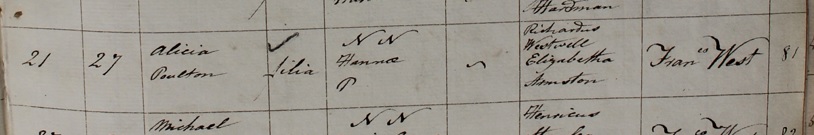 Hardman
21 27 Alicia Poulton filia N N Hannæ P Richardus Westwell Elizabetha Armston Franes West 81
Michael N N Henricus